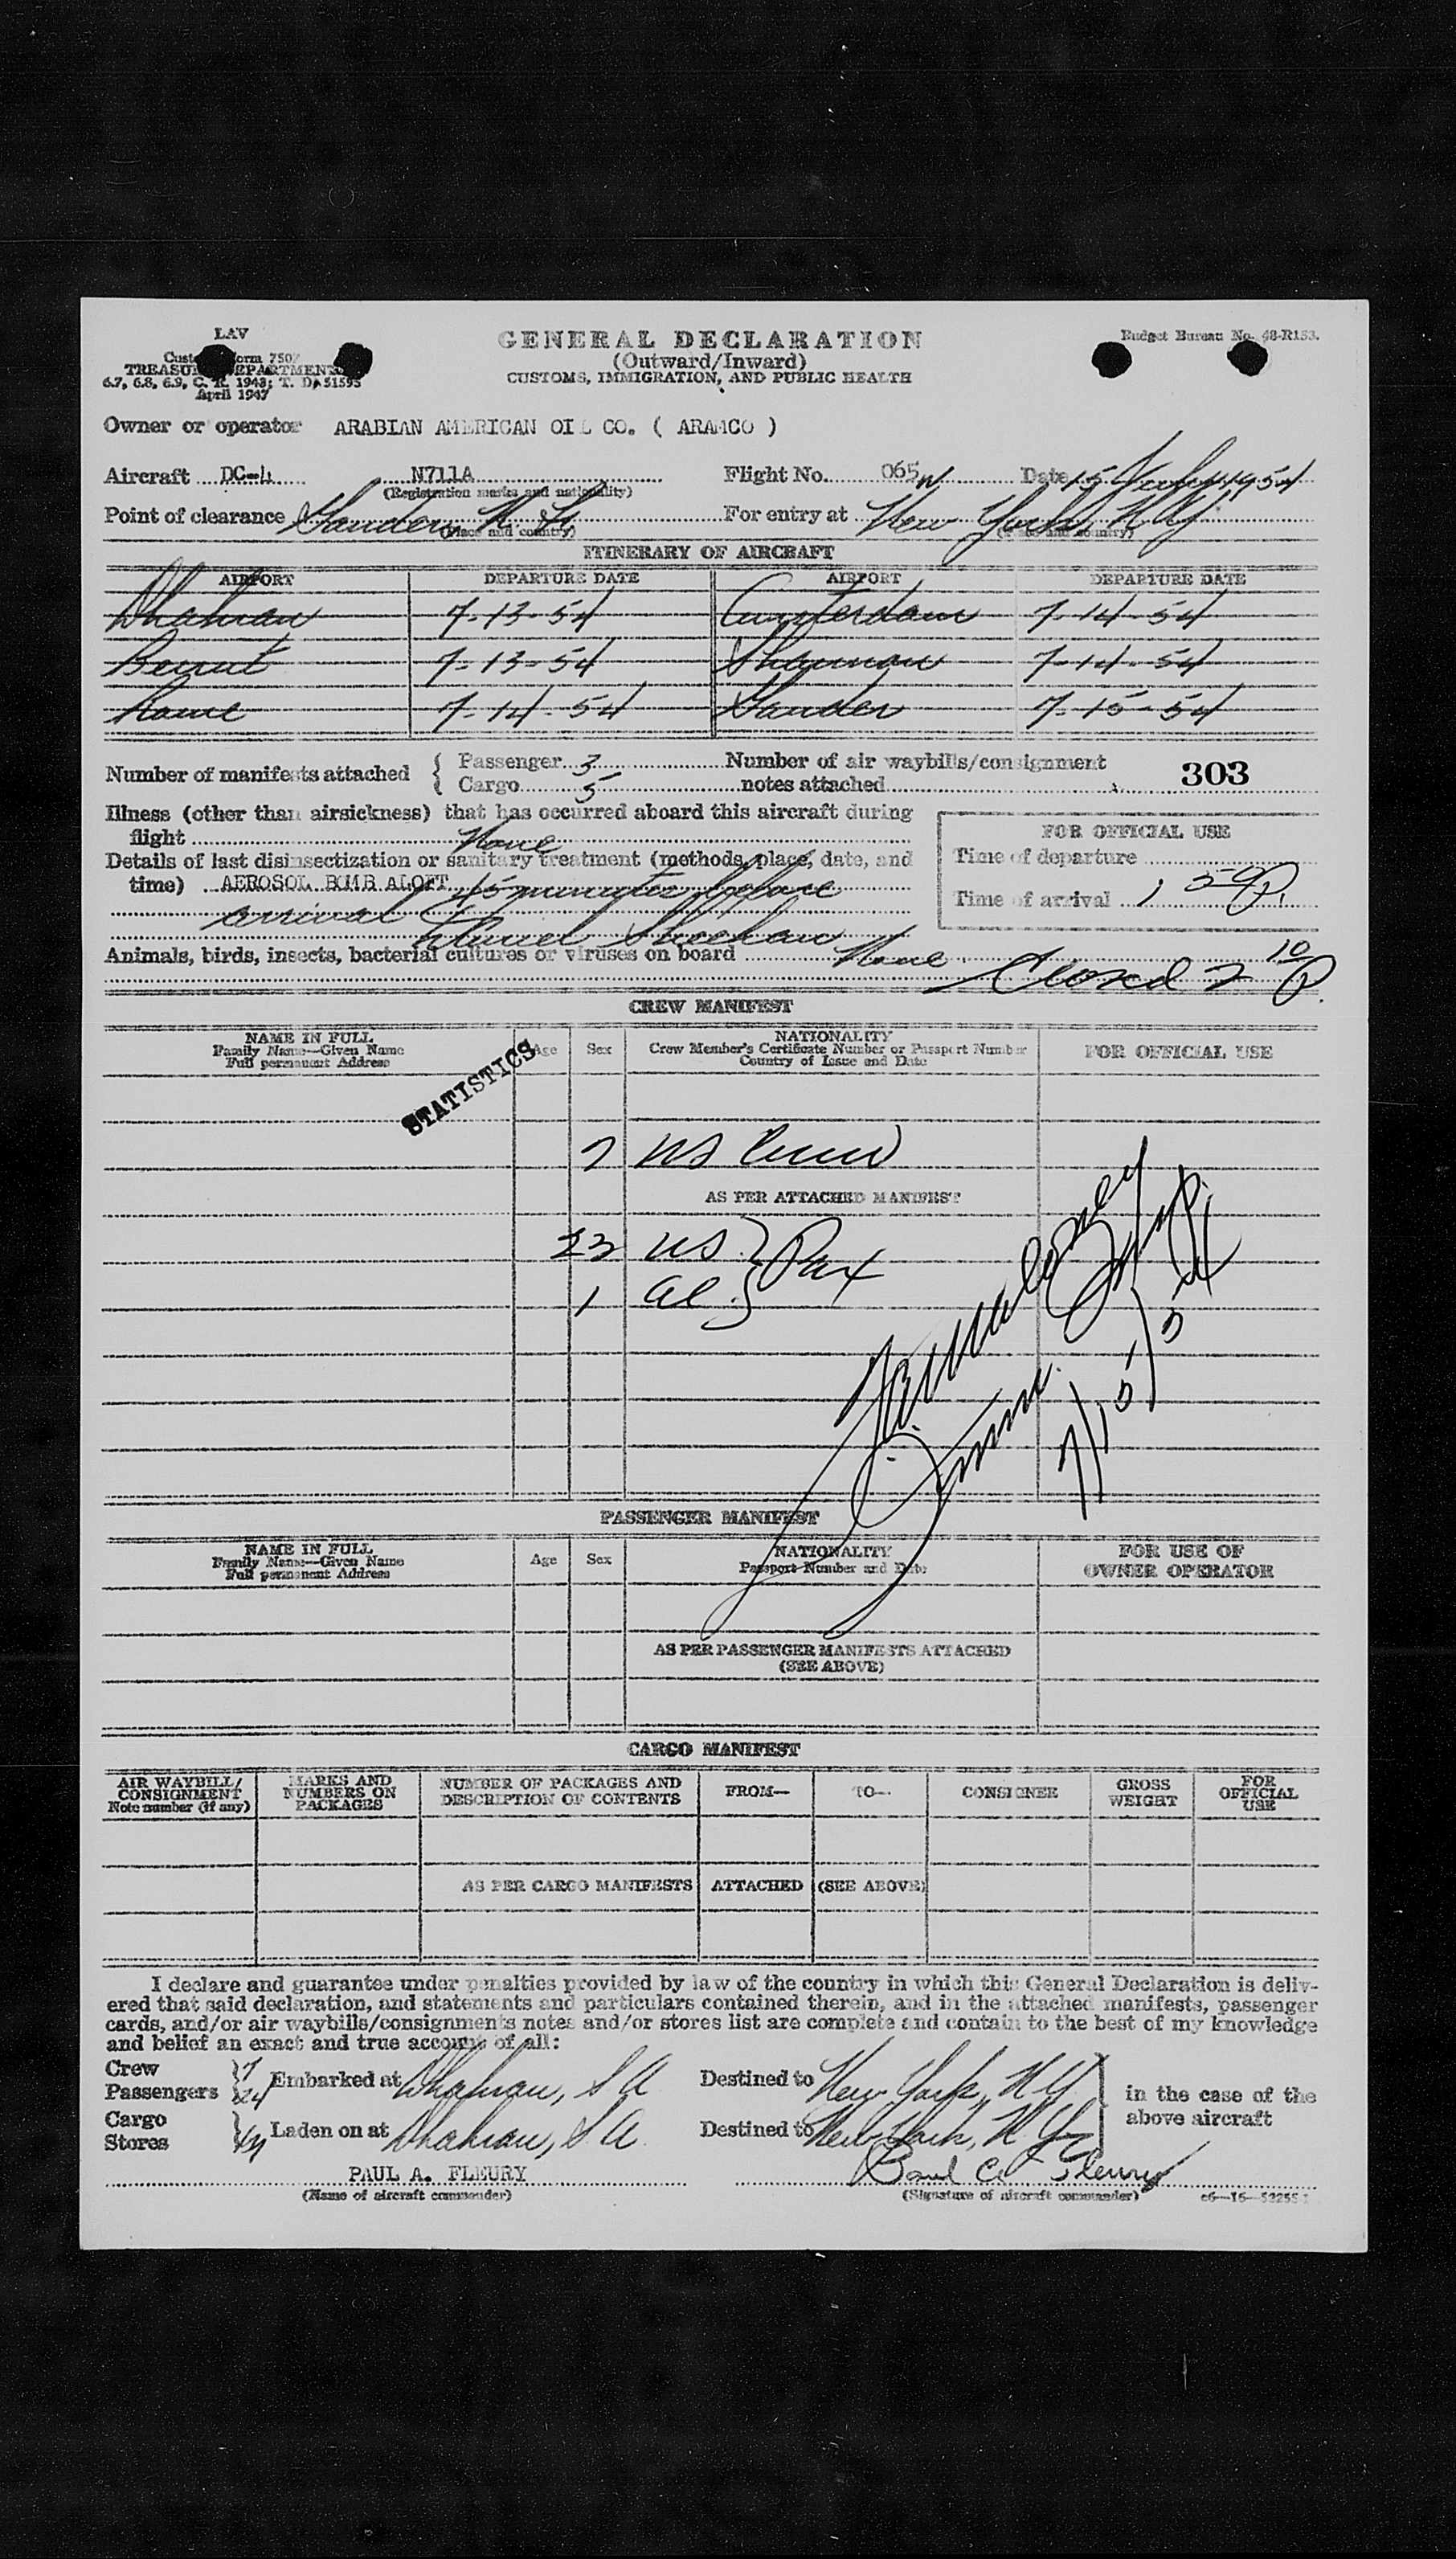 LAV
Customs Form 7507
TREASURY DEPARTMENT
6.7, 6.8, 6.9, C. R. 1943; T. D. 51595
April 1947
GENERAL DECLARATION
(Outward/Inward)
CUSTOMS, IMMIGRATION, AND PUBLIC HEALTH
Budget Bureau No. 48-R153.
Owner or operator ARABIAN AMERICAN OIL CO. ( ARAMCO )
Aircraft DC-4 N711A Flight No. 065W Date 15 July 1954
(Registration marks and nationality)
Point of clearance Gander, N. F. For entry at New York, N.Y.
(Place and country) (Place and country)
ITINERARY OF AIRCRAFT
AIRPORT DEPARTURE DATE AIRPORT DEPARTURE DATE
Dhahran 7-13-54 Amsterdam 7-14-54
Beirut 7-13-54 Shannon 7-14-54
Rome 7-14-54 Gander 7-15-54
Number of manifests attached { Passenger 3 Number of air waybills/consignment
Cargo 5 notes attached 303
Illness (other than airsickness) that has occurred aboard this aircraft during
flight None
Details of last disinsectization or sanitary treatment (methods, place, date, and
time) AEROSOL BOMB ALOFT 15 minutes before
arrival
Sheehan
FOR OFFICIAL USE
Time of departure
Time of arrival 1 50 P.
Animals, birds, insects, bacterial cultures or viruses on board None
Closed 2 10 P.
CREW MANIFEST
NAME IN FULL
Family Name—Given Name
Full permanent Address
Age
Sex
NATIONALITY
Crew Member's Certificate Number or Passport Number
Country of Issue and Date
FOR OFFICIAL USE
STATISTICS
7 US Crew
AS PER ATTACHED MANIFEST
23 US } Pax
1 al.
7/15/54
PASSENGER MANIFEST
NAME IN FULL
Family Name—Given Name
Full permanent Address
Age
Sex
NATIONALITY
Passport Number and Date
FOR USE OF
OWNER OPERATOR
AS PER PASSENGER MANIFESTS ATTACHED
(SEE ABOVE)
CARGO MANIFEST
AIR WAYBILL/
CONSIGNMENT
Note number (if any)
MARKS AND
NUMBERS ON
PACKAGES
NUMBER OF PACKAGES AND
DESCRIPTION OF CONTENTS
FROM—
TO—
CONSIGNEE
GROSS
WEIGHT
FOR
OFFICIAL
USE
AS PER CARGO MANIFESTS ATTACHED (SEE ABOVE)
I declare and guarantee under penalties provided by law of the country in which this General Declaration is deliv-
ered that said declaration, and statements and particulars contained therein, and in the attached manifests, passenger
cards, and/or air waybills/consignments notes and/or stores list are complete and contain to the best of my knowledge
and belief an exact and true account of all:
Crew } 7
Passengers } 24 Embarked at Dhahran, S A Destined to New York, N Y } in the case of the
Cargo
Stores } Laden on at Dhahran, S A. Destined to New York, N. Y. above aircraft
PAUL A. FLEURY Paul A. Fleury
(Name of aircraft commander) (Signature of aircraft commander) c6—16—52255-1